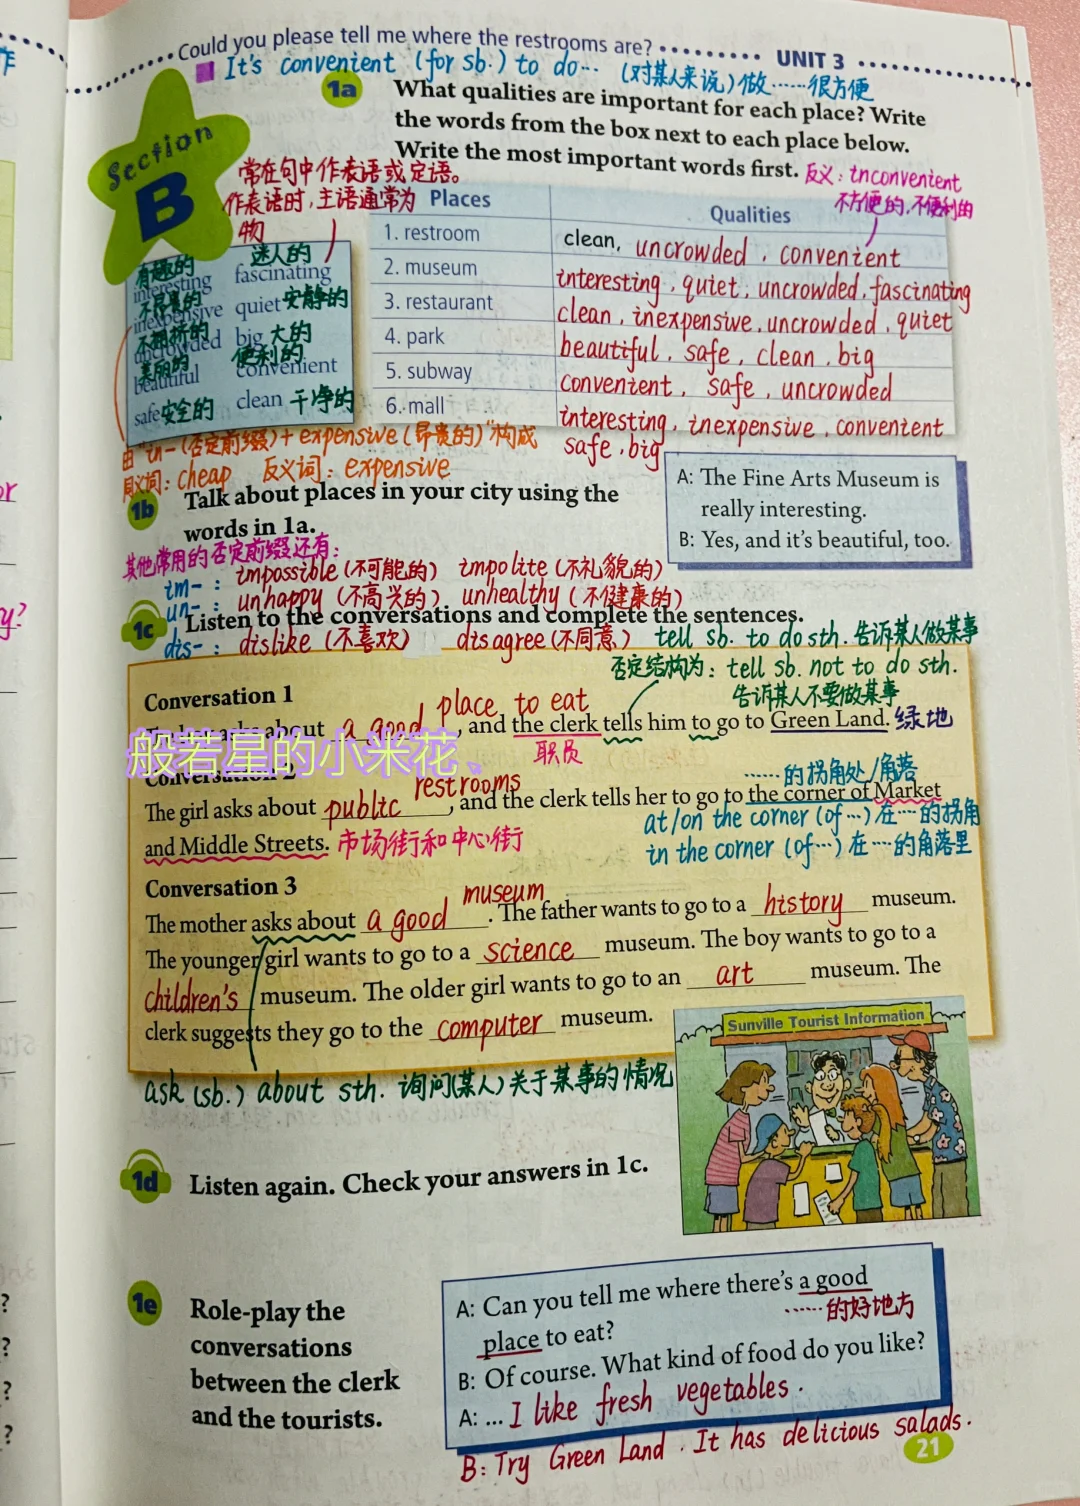 Could you please tell me where the restrooms are? UNIT 3
It's convenient (for sb.) to do… (对某人来说)做……很方便
Section
B
1a What qualities are important for each place? Write
the words from the box next to each place below.
Write the most important words first. 反义: inconvenient
不方便的,不便利的
常在句中作表语或定语。
作表语时,主语通常为
物
有趣的 迷人的
interesting fascinating
不昂贵的
inexpensive quiet 安静的
不拥挤的
uncrowded big 大的
美丽的 便利的
beautiful convenient
safe 安全的 clean 干净的
Places Qualities
1. restroom clean, uncrowded, convenient
2. museum interesting, quiet, uncrowded, fascinating
3. restaurant clean, inexpensive, uncrowded, quiet
4. park beautiful, safe, clean, big
5. subway convenient, safe, uncrowded
6. mall interesting, inexpensive, convenient
safe, big
由"in-(否定前缀)+ expensive(昂贵的)"构成
同义词: cheap 反义词: expensive
1b Talk about places in your city using the
words in 1a.
A: The Fine Arts Museum is
really interesting.
B: Yes, and it's beautiful, too.
其他常用的否定前缀还有:
im-: impossible(不可能的) impolite(不礼貌的)
un-: unhappy(不高兴的) unhealthy(不健康的)
1c Listen to the conversations and complete the sentences.
dis-: dislike(不喜欢) disagree(不同意) tell sb. to do sth. 告诉某人做某事
否定结构为: tell sb. not to do sth.
告诉某人不要做某事
Conversation 1
asks about a good place to eat, and the clerk tells him to go to Green Land. 绿地
职员
般若星的小米花、
Conversation 2
……的拐角处/角落
The girl asks about public restrooms, and the clerk tells her to go to the corner of Market
at/on the corner (of…)在…的拐角
and Middle Streets. 市场街和中心街
in the corner (of…)在…的角落里
Conversation 3
The mother asks about a good museum. The father wants to go to a history museum.
The younger girl wants to go to a science museum. The boy wants to go to a
children's museum. The older girl wants to go to an art museum. The
clerk suggests they go to the computer museum.
ask (sb.) about sth. 询问(某人)关于某事的情况
Sunville Tourist Information
1d Listen again. Check your answers in 1c.
1e Role-play the
conversations
between the clerk
and the tourists.
A: Can you tell me where there's a good
……的好地方
place to eat?
B: Of course. What kind of food do you like?
A: ... I like fresh vegetables.
B: Try Green Land. It has delicious salads.
21